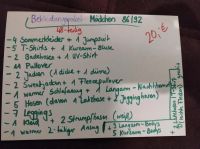 Bekleidungspaket Mädchen 86/92
48-teilig
20,-€
- 4 Sommerkleider + 1 Jumpsuit
- 5 T-Shirts + 1 Kurzarm-Bluse
- 2 Badehosen + 1 UV-Shirt
- 11 Pullover
- 2 Jacken (1 dicke + 1 dünne)
- 2 Sweatjacken + 1 Fleecepullover
- 1 warmer Schlafanzug + 1 Langarm-Nachthemd
- 5 Hosen (davon 1 Latzhose + 2 Jogginghosen)
- 7 Leggings
- 1 Kleid + 2 Strumpfhosen (weiß)
- 1 warmer 2-teiliger Anzug + 3 Langarm-Bodys
5 Kurzarm-Bodys